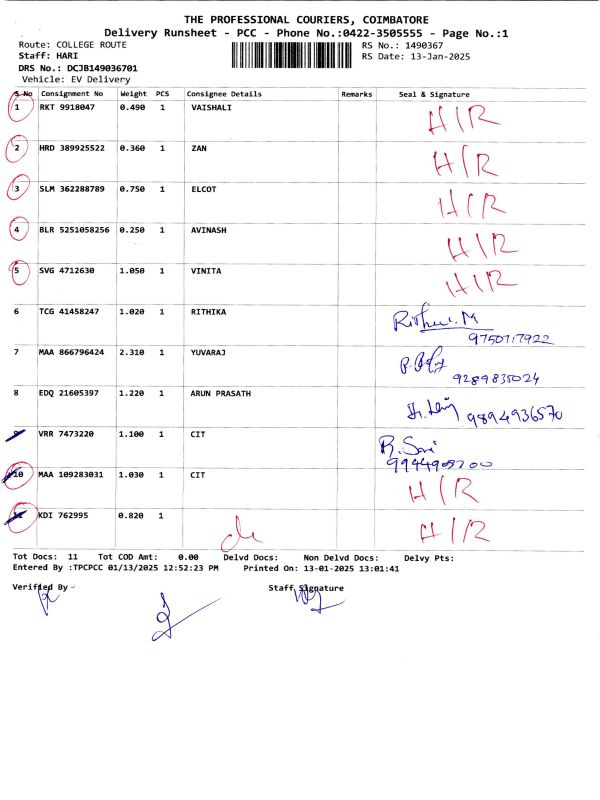 THE PROFESSIONAL COURIERS, COIMBATORE
Delivery Runsheet - PCC - Phone No.:0422-3505555 - Page No.:1
Route: COLLEGE ROUTE
RS No.: 1490367
Staff: HARI
RS Date: 13-Jan-2025
DRS No.: DCJB149036701
Vehicle: EV Delivery
S No Consignment No Weight PCS Consignee Details Remarks Seal & Signature
1 RKT 9918047 0.490 1 VAISHALI H/R
2 HRD 389925522 0.360 1 ZAN H/R
3 SLM 362288789 0.750 1 ELCOT H/R
4 BLR 5251058256 0.250 1 AVINASH H/R
5 SVG 4712630 1.050 1 VINITA H/R
6 TCG 41458247 1.020 1 RITHIKA
9750717922
7 MAA 866796424 2.310 1 YUVARAJ
9289835024
8 EDQ 21605397 1.220 1 ARUN PRASATH
9894936570
9 VRR 7473220 1.100 1 CIT
10 MAA 109283031 1.030 1 CIT H/R
11 KDI 762995 0.820 1 H/R
Tot Docs: 11 Tot COD Amt: 0.00 Delvd Docs: Non Delvd Docs: Delvy Pts:
Entered By :TPCPCC 01/13/2025 12:52:23 PM Printed On: 13-01-2025 13:01:41
Verified By
Staff Signature